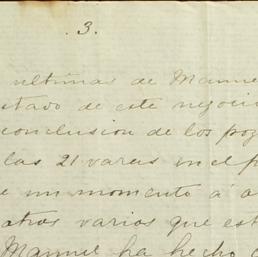 .3.
ultimas de Manue
stado de este negocio
conclusion de los poz
las 21 varas en el p
e un momento á a
atros varios que est
Manuel ha hecho